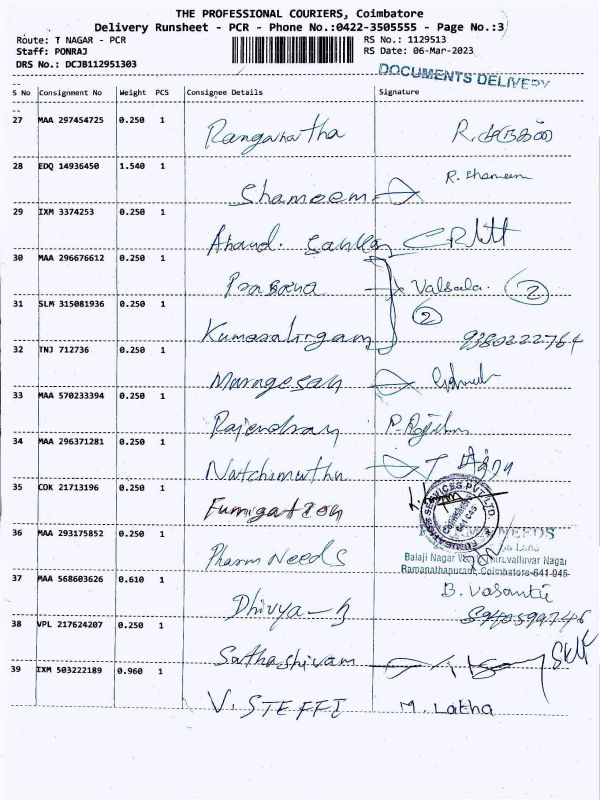 THE PROFESSIONAL COURIERS, Coimbatore
Delivery Runsheet - PCR - Phone No.:0422-3505555 - Page No.:3
Route: T NAGAR - PCR
RS No.: 1129513
Staff: PONRAJ
RS Date: 06-Mar-2023
DRS No.: DCJB112951303
DOCUMENTS DELIVERY
S No Consignment No Weight PCS Consignee Details Signature
27 MAA 297454725 0.250 1
Ranganatha R.
28 EDQ 14936450 1.540 1
R. Shameem
Shameem
29 IXM 3374253 0.250 1
Anand.
30 MAA 296676612 0.250 1
Prasana Valsala. 2
31 SLM 315081936 0.250 1
2
Kumaralingam 9380222764
32 TNJ 712736 0.250 1
Murugesan
33 MAA 570233394 0.250 1
Rajendran P.
34 MAA 296371281 0.250 1
Natchimuthu T
35 COK 21713196 0.250 1
Fumigation
SERVICES PVT LTD
36 MAA 293175852 0.250 1
NEEDS
Pharm Needs
Balaji Nagar Thiruvalluvar Nagar
Ramanathapuram, Coimbatore-641 045
37 MAA 568603626 0.610 1
B. Vasanti
Dhivya
38 VPL 217624207 0.250 1
Sathashivam Self
39 IXM 503222189 0.960 1
V. STEFFI M. Latha